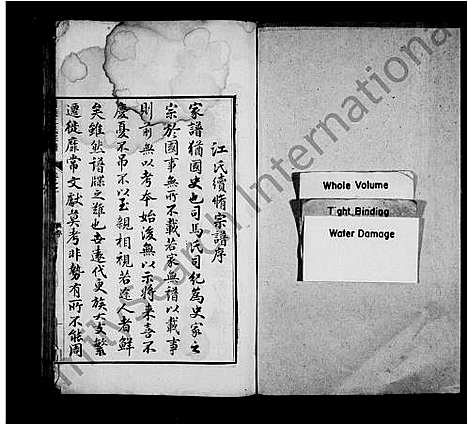 江氏續脩宗譜序
家譜猶國史也司馬氏日紀為史家之
宗於國事無所不載若家無譜以載事
則前無以考本始後無以示將來喜不
慶憂不吊不以至親相視若途人者鮮
矣雖然譜牒之難也世遠代更族大支繁
遷徙靡常文獻莫考非勢有所不能周
Whole Volume
Tight Binding
Water Damage
International